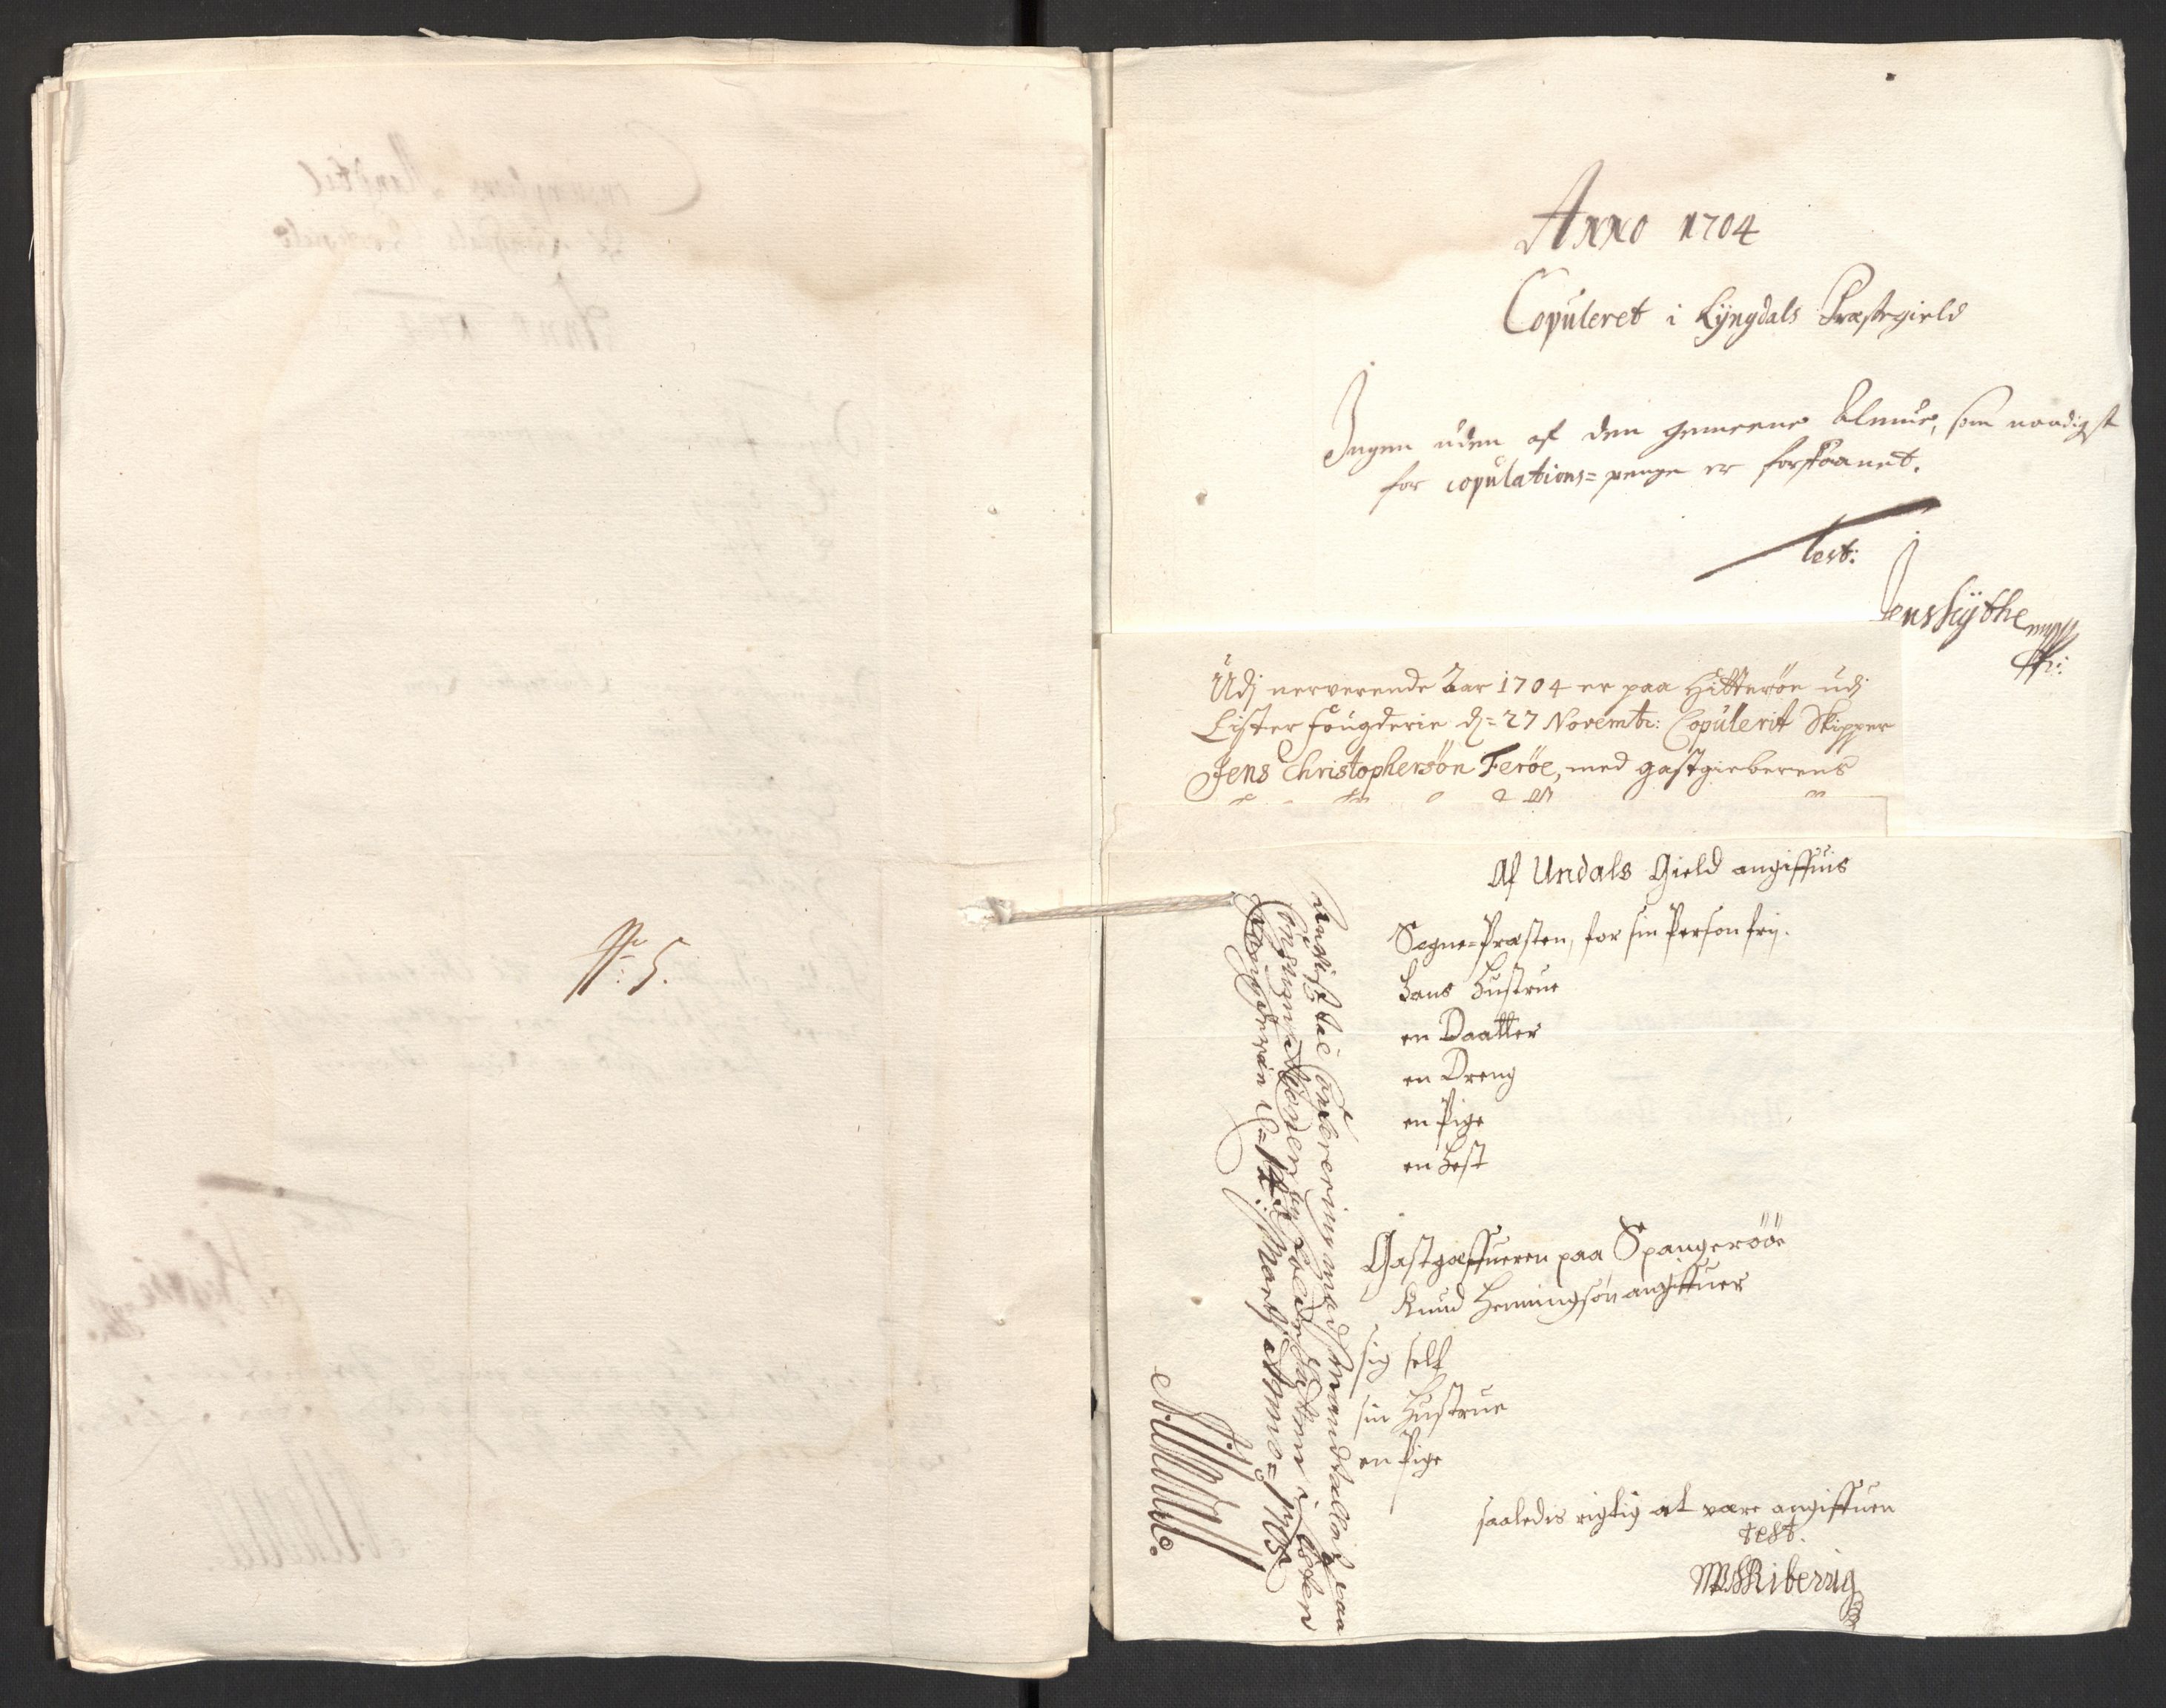 No: 5.
Anno 1704
Copuleret i Lyngdals Præstegield
Ingen uden af den gemeene Almue, som naadigst
for copulations=penge er forskaanet.
Test:
Jens
Udj nerverende Aar 1704 er paa Hitterøe udj
Lister fougderie d= 27 Novembr: Copulerit Skipper
Jens Christophersøn Ferøe, med gastgieberens
Af Undals Gield angiffuis
Sogne=Præsten, for sin Person frij.
Hans Hustrue
en Daatter
en Dreng
en Pige
en Hest
Gastgæffueren paa Spangerøöe
Knud Henningsøn angiffuer
sig self
sin Hustrue
en Pige
saaledis rigtig at være angiffuen
test.
Ved Conferering med Mandtallet paa
Consumptionen
fougderie d= Martj Anno= 1705